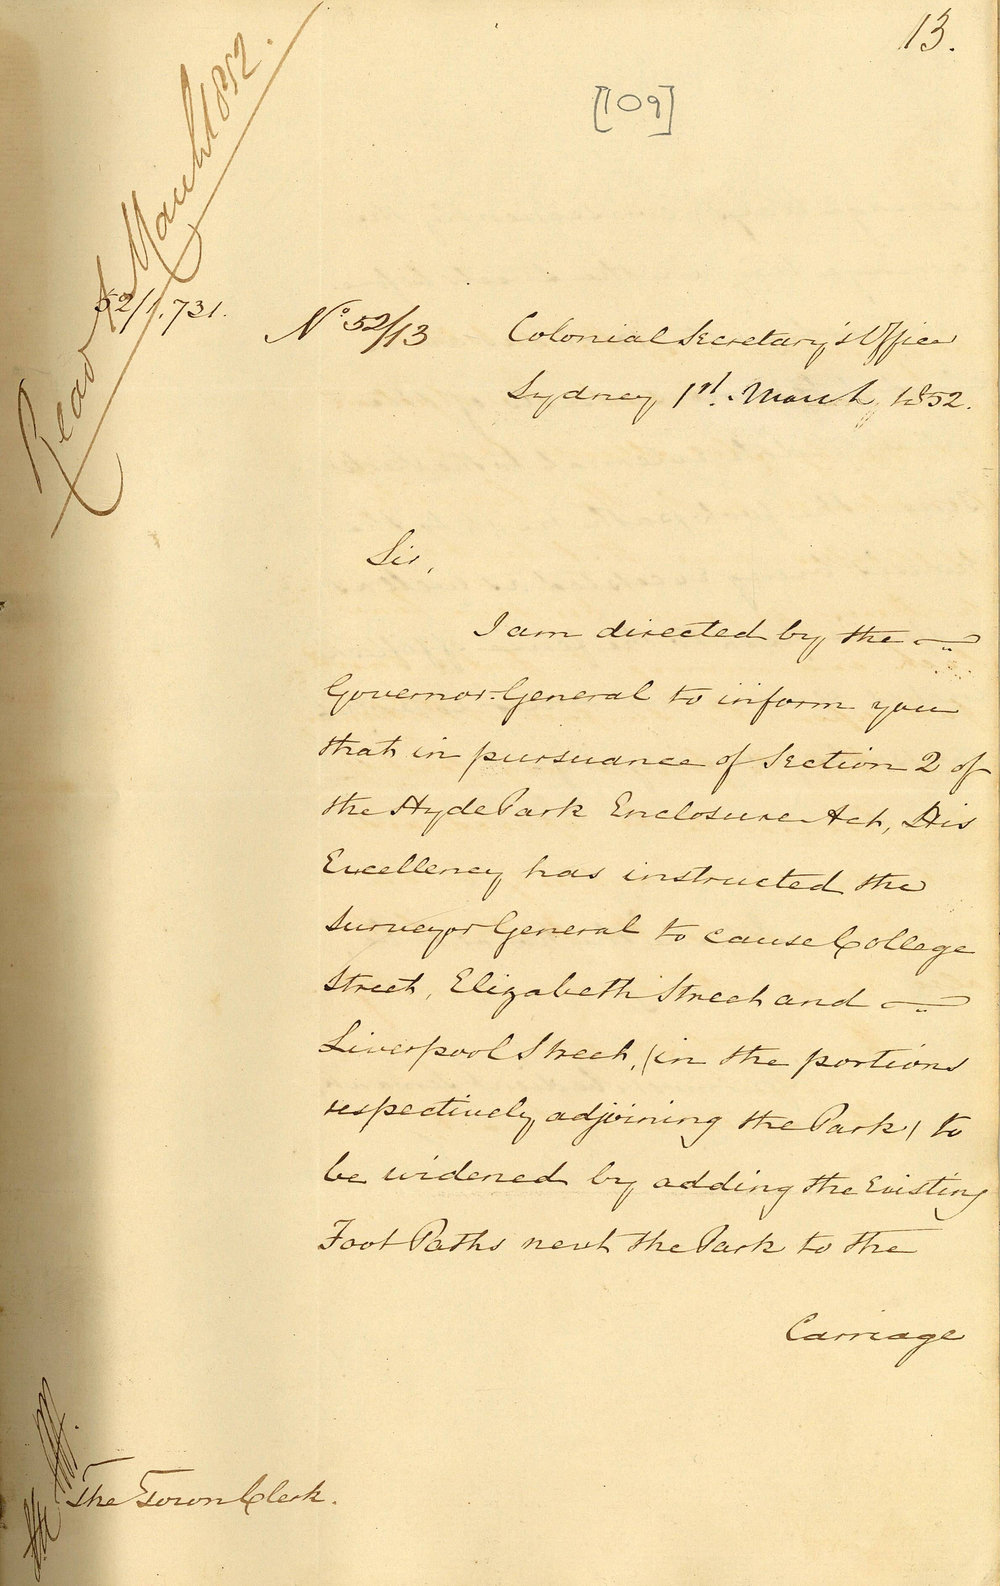 13.
[109]
Read March 1852.
52/1,731.
No 52/13
Colonial Secretary's Office
Sydney 1st. March, 1852.
Sir,
I am directed by the
Governor General to inform you
that in pursuance of Section 2 of
the Hyde Park Enclosure Act, His
Excellency has instructed the
Surveyor General to cause College
Street, Elizabeth Street and
Liverpool Street, (in the portions
respectively adjoining the Park) to
be widened by adding the Existing
Foot Paths next the Park to the
Carriage
The Town Clerk.